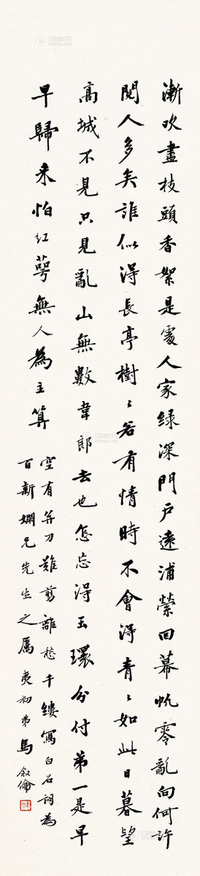 漸吹盡枝頭香絮是處人家綠深門戶遠浦縈回暮帆零亂向何許
閱人多矣誰似得長亭樹〻若有情時不會得青〻如此日暮望
高城不見只見亂山無數韋郎去也怎忘得玉環分付第一是早
早歸來怕紅萼無人為主算
空有并刀難剪離愁千縷寫白石詞為
百新婣兄先生之屬 夷初弟馬敘倫